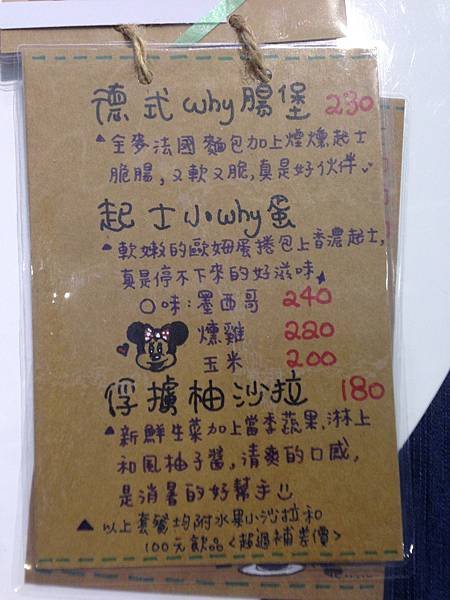 德式why腸堡 230
▲全麥法國麵包加上煙燻起士
脆腸,又軟又脆,真是好伙伴
起士小why蛋
▲軟嫩的歐姆蛋捲包上香濃起士,
真是停不下來的好滋味
口味:墨西哥 240
燻雞 220
玉米 200
俘擄柚沙拉 180
▲新鮮生菜加上當季蔬果,淋上
和風柚子醬,清爽的口感,
是消暑的好幫手
▲以上套餐均附水果小沙拉和
100元飲品<超過補差價>